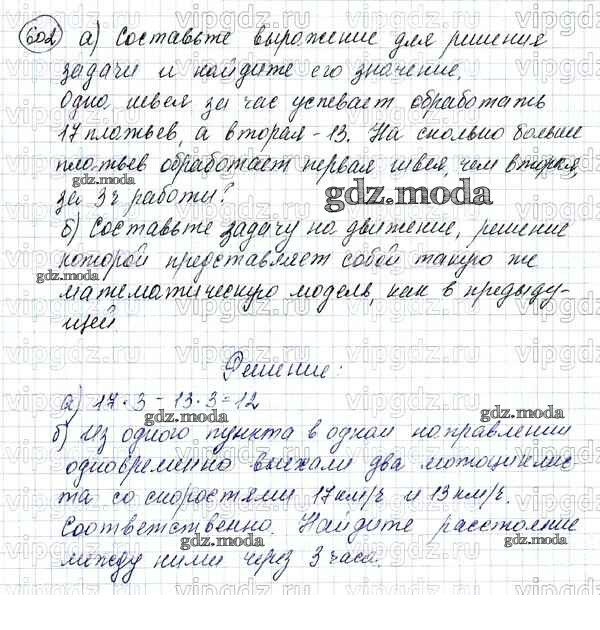 602 а) Составьте выражение для решения
задачи и найдите его значение.
Одна швея за час успевает обработать
17 платьев, а вторая - 13. На сколько больше
платьев обработает первая швея, чем вторая,
за 3ч работы?
gdz.moda
б) Составьте задачу на движение, решение
которой представляет собой такую же
математическую модель, как в предыду-
щей
Решение:
а) 17·3 - 13·3=12
б) Из одного пункта в одном направлении
одновременно выехали два мотоциклис-
та со скоростями 17км/ч и 13км/ч.
Соответственно. Найдите расстояние
между ними через 3 часа.